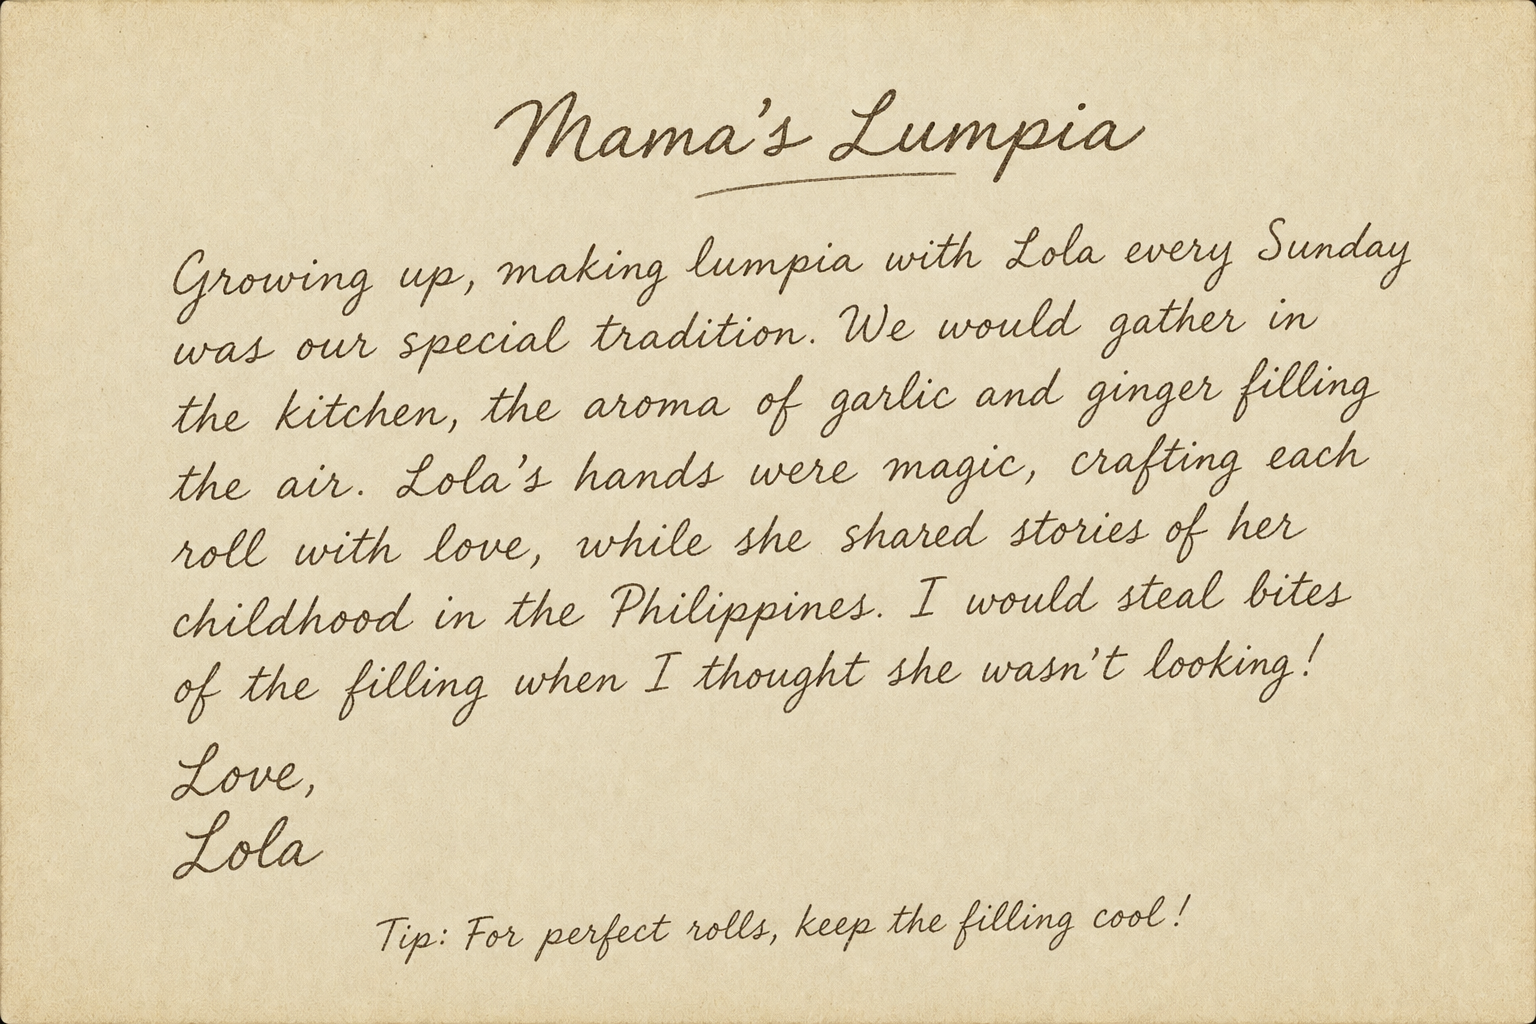 Mama's Lumpia
Growing up, making lumpia with Lola every Sunday
was our special tradition. We would gather in
the kitchen, the aroma of garlic and ginger filling
the air. Lola's hands were magic, crafting each
roll with love, while she shared stories of her
childhood in the Philippines. I would steal bites
of the filling when I thought she wasn't looking!
Love,
Lola
Tip: For perfect rolls, keep the filling cool!